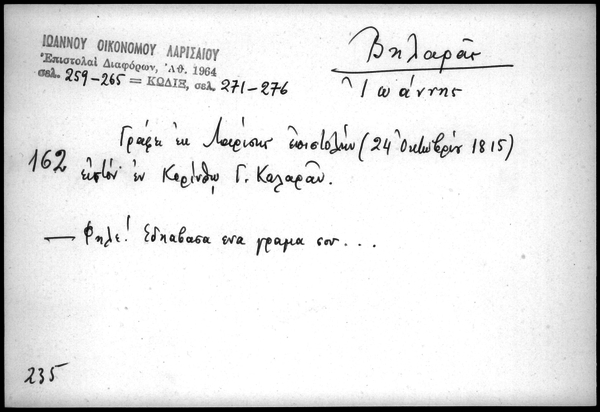 ΙΩΑΝΝΟΥ ΟΙΚΟΝΟΜΟΥ ΛΑΡΙΣΑΙΟΥ
Ἐπιστολαὶ Διαφόρων, Ἀθ. 1964
σελ. 259-265 = ΚΩΔΙΞ, σελ. 271-276
Βηλαρᾶς
Ἰωάννης
162
Γράφει ἐκ Λαρίσης ἐπιστολὴν (24 Ὀκτωβρίου 1815)
εἰς τὸν ἐν Κορίνθῳ Γ. Καλαρᾶν.
— Φηλε! Εδηαβασα ενα γραμα σου...
235